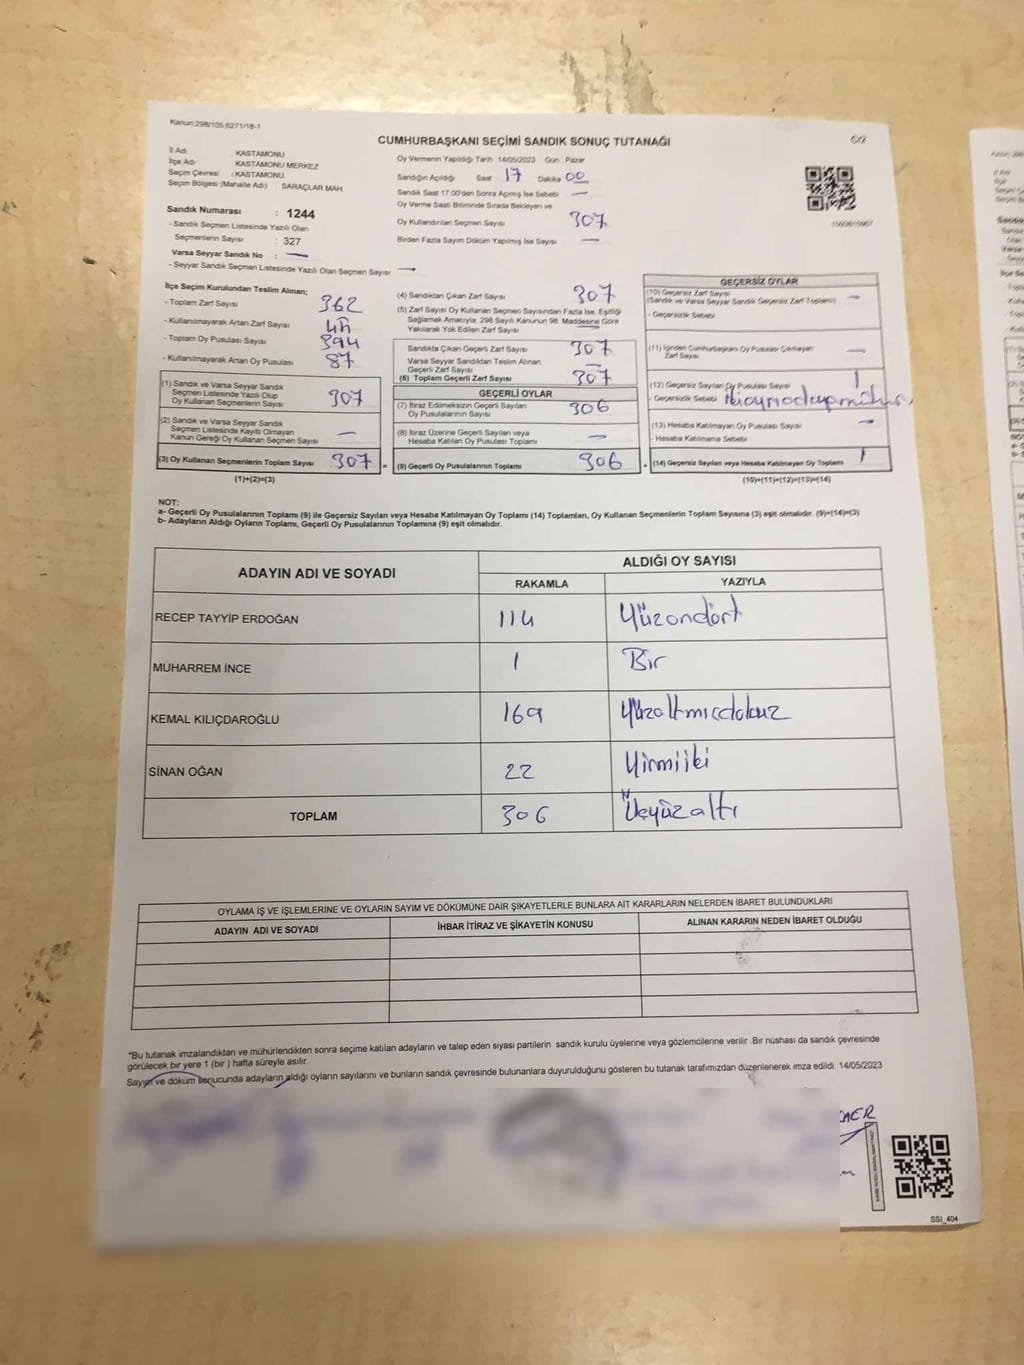 Kanun:298/105;6271/18-1
CUMHURBAŞKANI SEÇİMİ SANDIK SONUÇ TUTANAĞI
İl Adı : KASTAMONU
İlçe Adı : KASTAMONU MERKEZ
Seçim Çevresi : KASTAMONU
Seçim Bölgesi (Mahalle Adı) SARAÇLAR MAH.
Oy Vermenin Yapıldığı Tarih :14/05/2023 Gün : Pazar
Sandığın Açıldığı Saat 17 Dakika 00
Sandık Saat 17:00'den Sonra Açılmış İse Sebebi —
Oy Verme Saati Bitiminde Sırada Bekleyen ve
Oy Kullandırılan Seçmen Sayısı 307
Birden Fazla Sayım Döküm Yapılmış İse Sayısı —
Sandık Numarası : 1244
- Sandık Seçmen Listesinde Yazılı Olan
Seçmenlerin Sayısı : 327
Varsa Seyyar Sandık No : —
- Seyyar Sandık Seçmen Listesinde Yazılı Olan Seçmen Sayısı —
İlçe Seçim Kurulundan Teslim Alınan;
- Toplam Zarf Sayısı 362
- Kullanılmayarak Artan Zarf Sayısı
- Toplam Oy Pusulası Sayısı 394
- Kullanılmayarak Artan Oy Pusulası 87
(1) Sandık ve Varsa Seyyar Sandık
Seçmen Listesinde Yazılı Olup
Oy Kullanan Seçmenlerin Sayısı 307
(2) Sandık ve Varsa Seyyar Sandık
Seçmen Listesinde Kayıtlı Olmayan
Kanun Gereği Oy Kullanan Seçmen Sayısı —
(3) Oy Kullanan Seçmenlerin Toplam Sayısı 307 =
(1)+(2)=(3)
(4) Sandıktan Çıkan Zarf Sayısı 307
(5) Zarf Sayısı Oy Kullanan Seçmen Sayısından Fazla İse, Eşitliği
Sağlamak Amacıyla; 298 Sayılı Kanunun 98. Maddesine Göre
Yakılarak Yok Edilen Zarf Sayısı —
Sandıkta Çıkan Geçerli Zarf Sayısı 307
Varsa Seyyar Sandıktan Teslim Alınan
Geçerli Zarf Sayısı —
(6) Toplam Geçerli Zarf Sayısı 307
GEÇERLİ OYLAR
(7) İtiraz Edilmeksizin Geçerli Sayılan
Oy Pusulalarının Sayısı 306
(8) İtiraz Üzerine Geçerli Sayılan veya
Hesaba Katılan Oy Pusulası Toplamı —
(9) Geçerli Oy Pusulalarının Toplamı 306 +
GEÇERSİZ OYLAR
(10) Geçersiz Zarf Sayısı
(Sandık ve Varsa Seyyar Sandık Geçersiz Zarf Toplamı) —
- Geçersizlik Sebebi
(11) İçinden Cumhurbaşkanı Oy Pusulası Çıkmayan
Zarf Sayısı —
(12) Geçersiz Sayılan Oy Pusulası Sayısı 1
- Geçersizlik Sebebi
(13) Hesaba Katılmayan Oy Pusulası Sayısı —
- Hesaba Katılmama Sebebi
(14) Geçersiz Sayılan veya Hesaba Katılmayan Oy Toplamı 1
(10)+(11)+(12)+(13)=(14)
NOT:
a- Geçerli Oy Pusulalarının Toplamı (9) ile Geçersiz Sayılan veya Hesaba Katılmayan Oy Toplamı (14) Toplamları, Oy Kullanan Seçmenlerin Toplam Sayısına (3) eşit olmalıdır. (9)+(14)=(3)
b- Adayların Aldığı Oyların Toplamı, Geçerli Oy Pusulalarının Toplamına (9) eşit olmalıdır.
ADAYIN ADI VE SOYADI ALDIĞI OY SAYISI
RAKAMLA YAZIYLA
RECEP TAYYİP ERDOĞAN 114 Yüzondört
MUHARREM İNCE 1 Bir
KEMAL KILIÇDAROĞLU 169 Yüzaltmışdokuz
SİNAN OĞAN 22 Yirmiiki
TOPLAM 306 Üçyüzaltı
OYLAMA İŞ VE İŞLEMLERİNE VE OYLARIN SAYIM VE DÖKÜMÜNE DAİR ŞİKAYETLERLE BUNLARA AİT KARARLARIN NELERDEN İBARET BULUNDUKLARI
ADAYIN ADI VE SOYADI İHBAR İTİRAZ VE ŞİKAYETİN KONUSU ALINAN KARARIN NEDEN İBARET OLDUĞU
*Bu tutanak imzalandıktan ve mühürlendikten sonra seçime katılan adayların ve talep eden siyasi partilerin sandık kurulu üyelerine veya gözlemcilerine verilir. Bir nüshası da sandık çevresinde
görülecek bir yere 1 (bir ) hafta süreyle asılır.
Sayım ve döküm sonucunda adayların aldığı oyların sayılarını ve bunların sandık çevresinde bulunanlara duyurulduğunu gösteren bu tutanak tarafımızdan düzenlenerek imza edildi. 14/05/2023
SSI_404